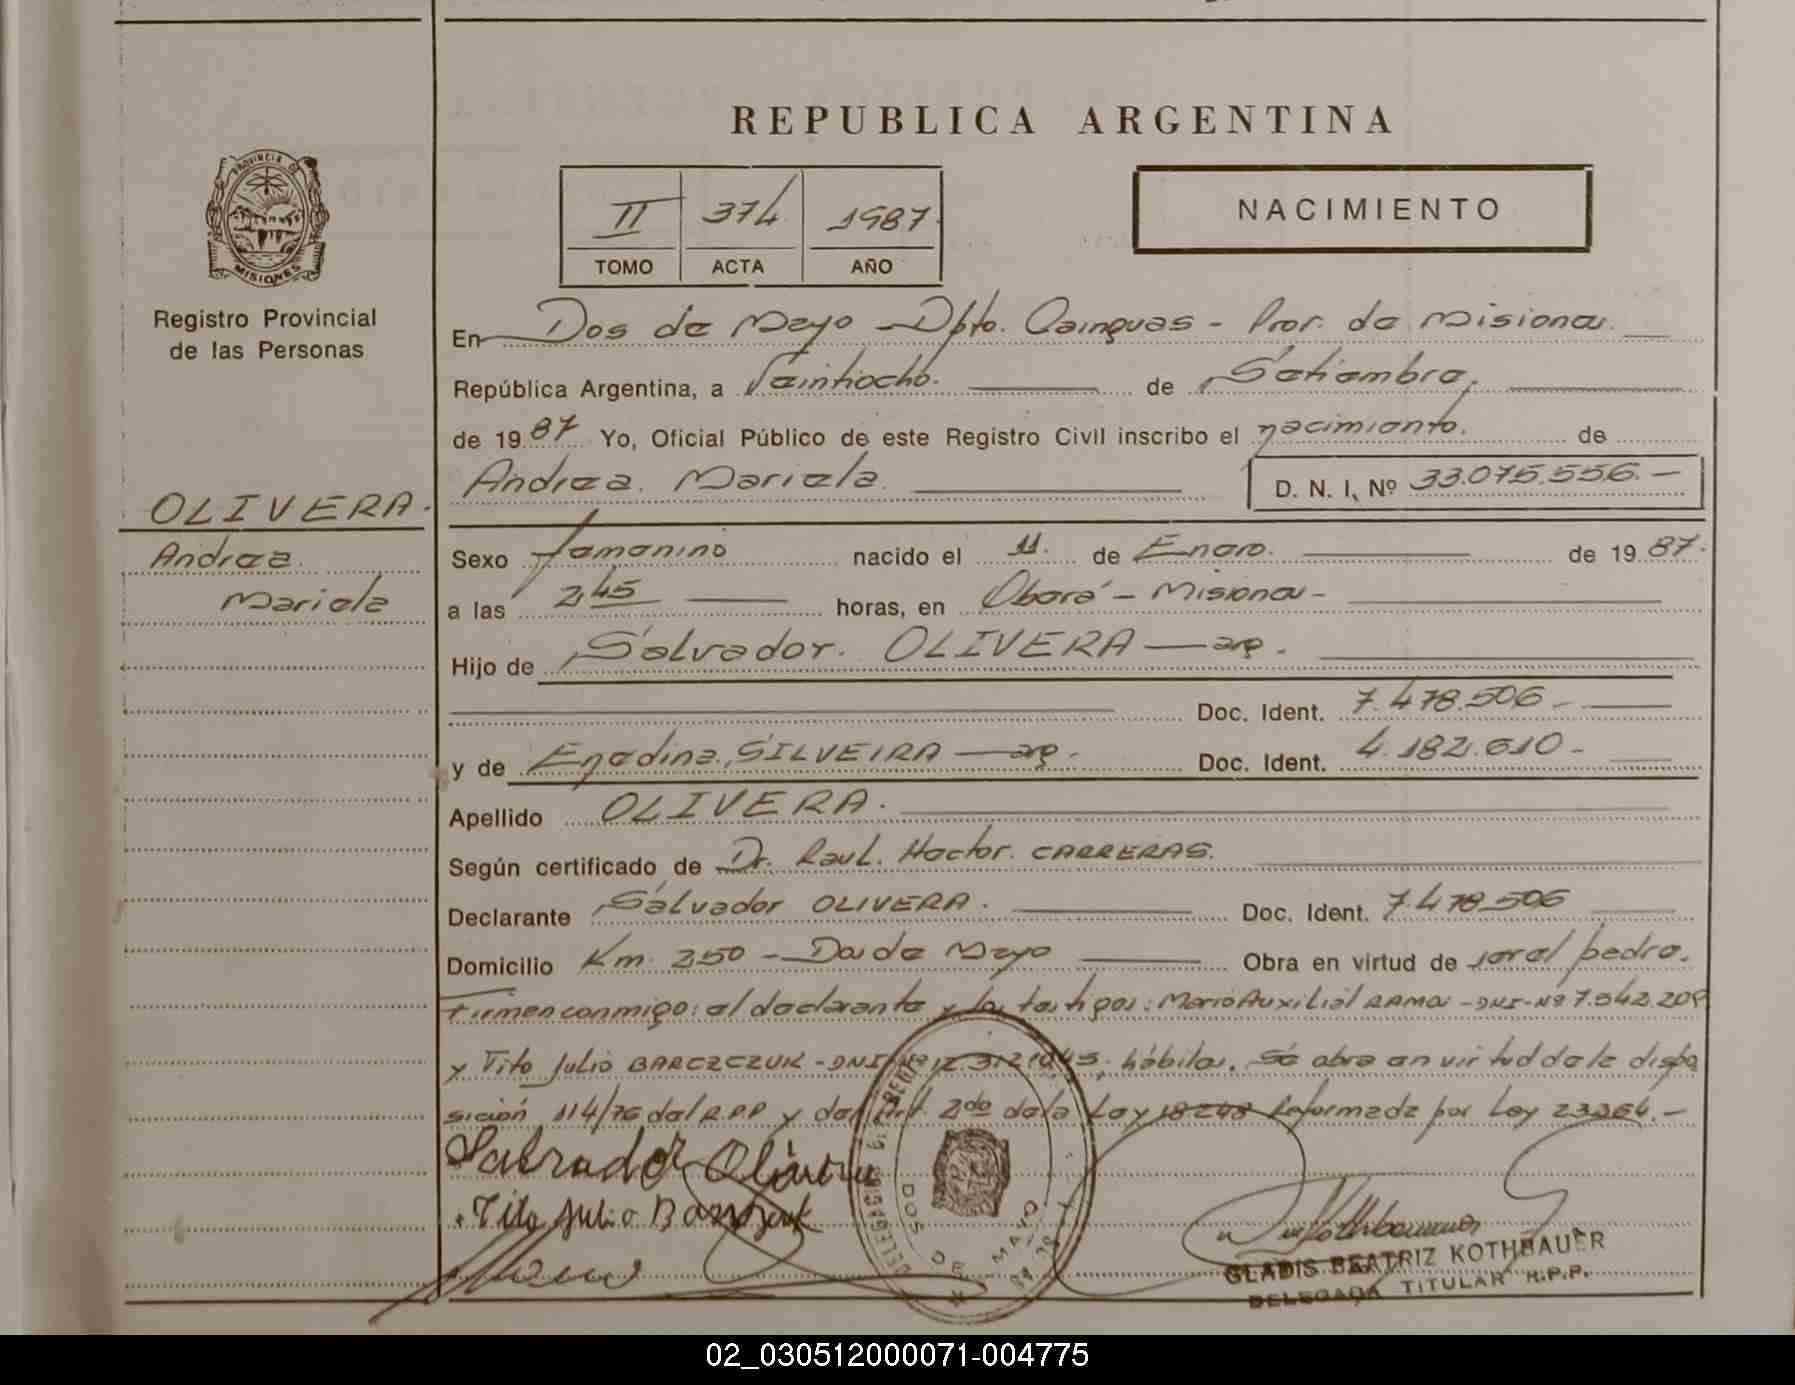 REPUBLICA ARGENTINA
PROVINCIA DE MISIONES
Registro Provincial
de las Personas
II 374 1987
TOMO ACTA AÑO
NACIMIENTO
En Dos de Mayo - Dpto. Cainguas - Prov. de Misiones.
República Argentina, a Veintiocho. de Setiembre.
de 1987 Yo, Oficial Público de este Registro Civil inscribo el nacimiento. de
Andrea Mariela. D. N. I, Nº 33.075.556.-
OLIVERA.
Andrea
Mariela
Sexo femenino nacido el 11. de Enero. de 1987.
a las 2,45 horas, en Oberá - Misiones -
Hijo de Salvador. OLIVERA — arg.
Doc. Ident. 7.478.506 -
y de Enedina, SILVEIRA — arg. Doc. Ident. 4.182.610 -
Apellido OLIVERA.
Según certificado de Dr. Raul. Hector. CARRERAS.
Declarante Salvador OLIVERA. Doc. Ident. 7.478.506
Domicilio Km. 250 - Dos de Mayo Obra en virtud de ser el padre.
Firman conmigo: el declarante y los testigos: Mario Auxilial RAMOS - DNI-Nº 7.542.209
y Tito Julio BARCZCZUK - DNI Nº hábiles. Se obra en virtud de la dispo
sición 114/76 del R.P.P y del Art. 2do de la Ley 18248 Reformada por Ley 23264.-
Salvador Olivera
Tito Julio
DOS DE MAYO
GLADIS BEATRIZ KOTHBAUER
DELEGADA TITULAR R.P.P.
02_030512000071-004775